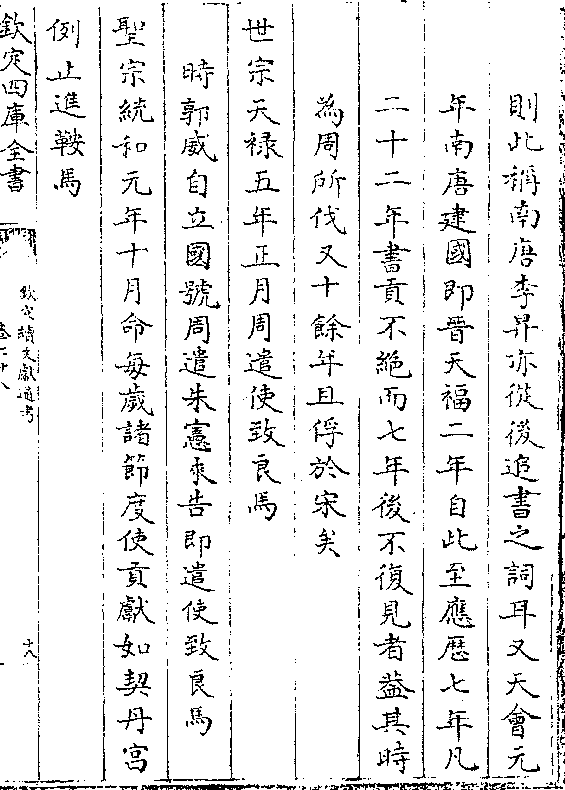 則此稱南唐李昪亦從後追書之詞耳又天會元
年南唐建國即晉天福二年自此至應歷七年凡
二十二年書貢不絶而七年後不復見者葢其時
為周所伐又十餘年且俘於宋矣
世宗天禄五年正月周遣使致良馬
時郭威自立國號周遣朱憲來告即遣使致良馬
聖宗統和元年十月命每歲諸節度使貢獻如契丹宫
例止進鞍馬
欽定四庫全書
欽定續文獻通考
卷二十八
十八